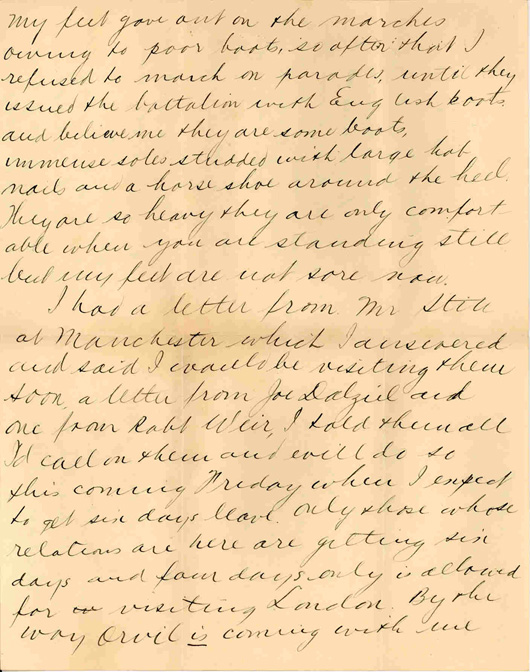 my feet gave out on the marches
owing to poor boots, so after that I
refused to march on parades, until they
issued the battalion with English boots
and believe me they are some boots,
immense soles studded with large hob
nails and a horse shoe around the heel.
They are so heavy they are only comfort
able when you are standing still
but my feet are not sore now.
I had a letter from Mr Stitt
at Manchester which I answered
and said I would be visiting them
soon, a letter from Joe Dalziel and
one from Robt Weir, I told them all
I'd call on them and will do so
this coming Friday when I expect
to get six days leave. Only those whose
relations are here are getting six
days and four days only is allowed
for visiting London. By the
way Orvil is coming with me